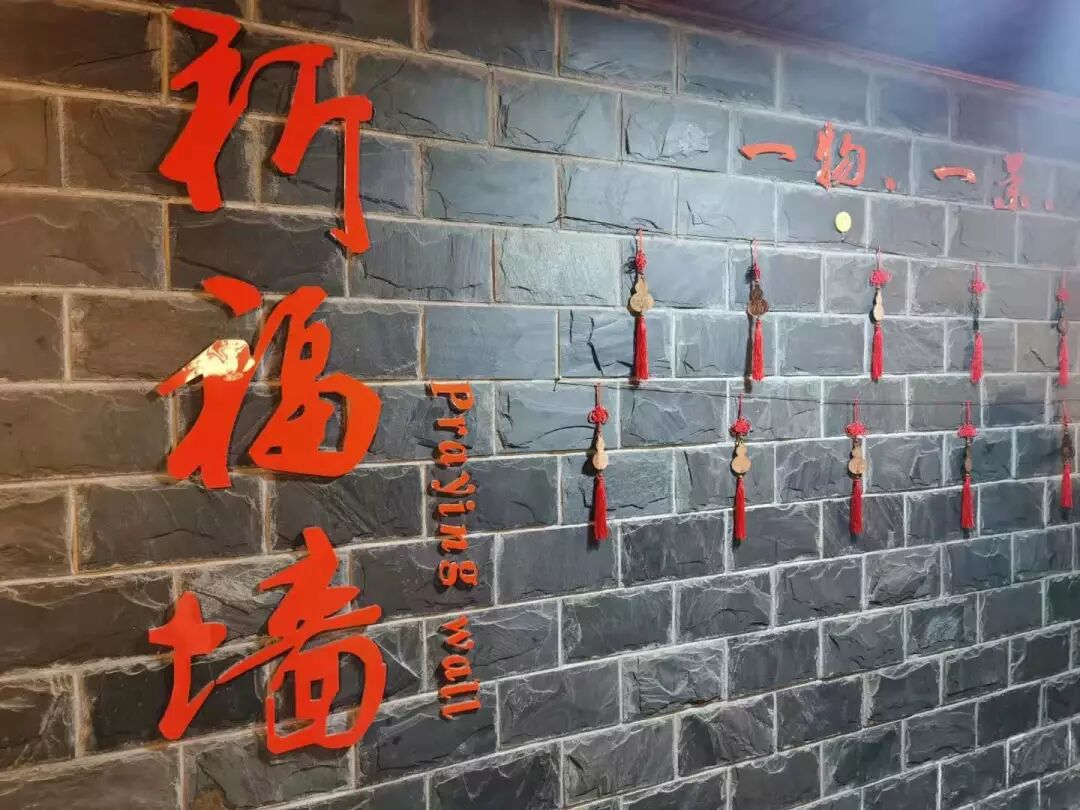 祈福墙
praying wall
一物、一景、